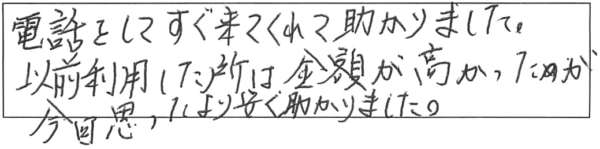 電話をしてすぐ来てくれて助かりました。
以前利用した所は金額が高かったのが
今回思ったより安く助かりました。